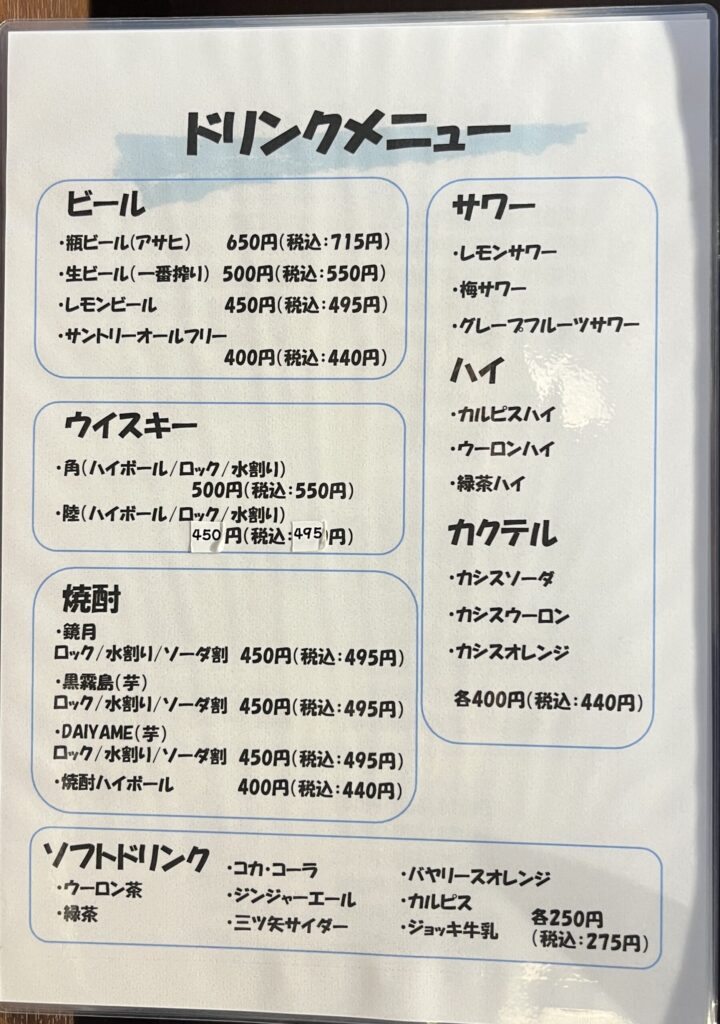 ドリンクメニュー
ビール
・瓶ビール(アサヒ) 650円(税込:715円)
・生ビール(一番搾り) 500円(税込:550円)
・レモンビール 450円(税込:495円)
・サントリーオールフリー
400円(税込:440円)
ウイスキー
・角(ハイボール/ロック/水割り)
500円(税込:550円)
・陸(ハイボール/ロック/水割り)
450円(税込:495円)
焼酎
・鏡月
ロック/水割り/ソーダ割 450円(税込:495円)
・黒霧島(芋)
ロック/水割り/ソーダ割 450円(税込:495円)
・DAIYAME(芋)
ロック/水割り/ソーダ割 450円(税込:495円)
・焼酎ハイボール 400円(税込:440円)
サワー
・レモンサワー
・梅サワー
・グレープフルーツサワー
ハイ
・カルピスハイ
・ウーロンハイ
・緑茶ハイ
カクテル
・カシスソーダ
・カシスウーロン
・カシスオレンジ
各400円(税込:440円)
ソフトドリンク
・ウーロン茶
・緑茶
・コカ・コーラ
・ジンジャーエール
・三ツ矢サイダー
・バヤリースオレンジ
・カルピス
・ジョッキ牛乳
各250円
(税込:275円)